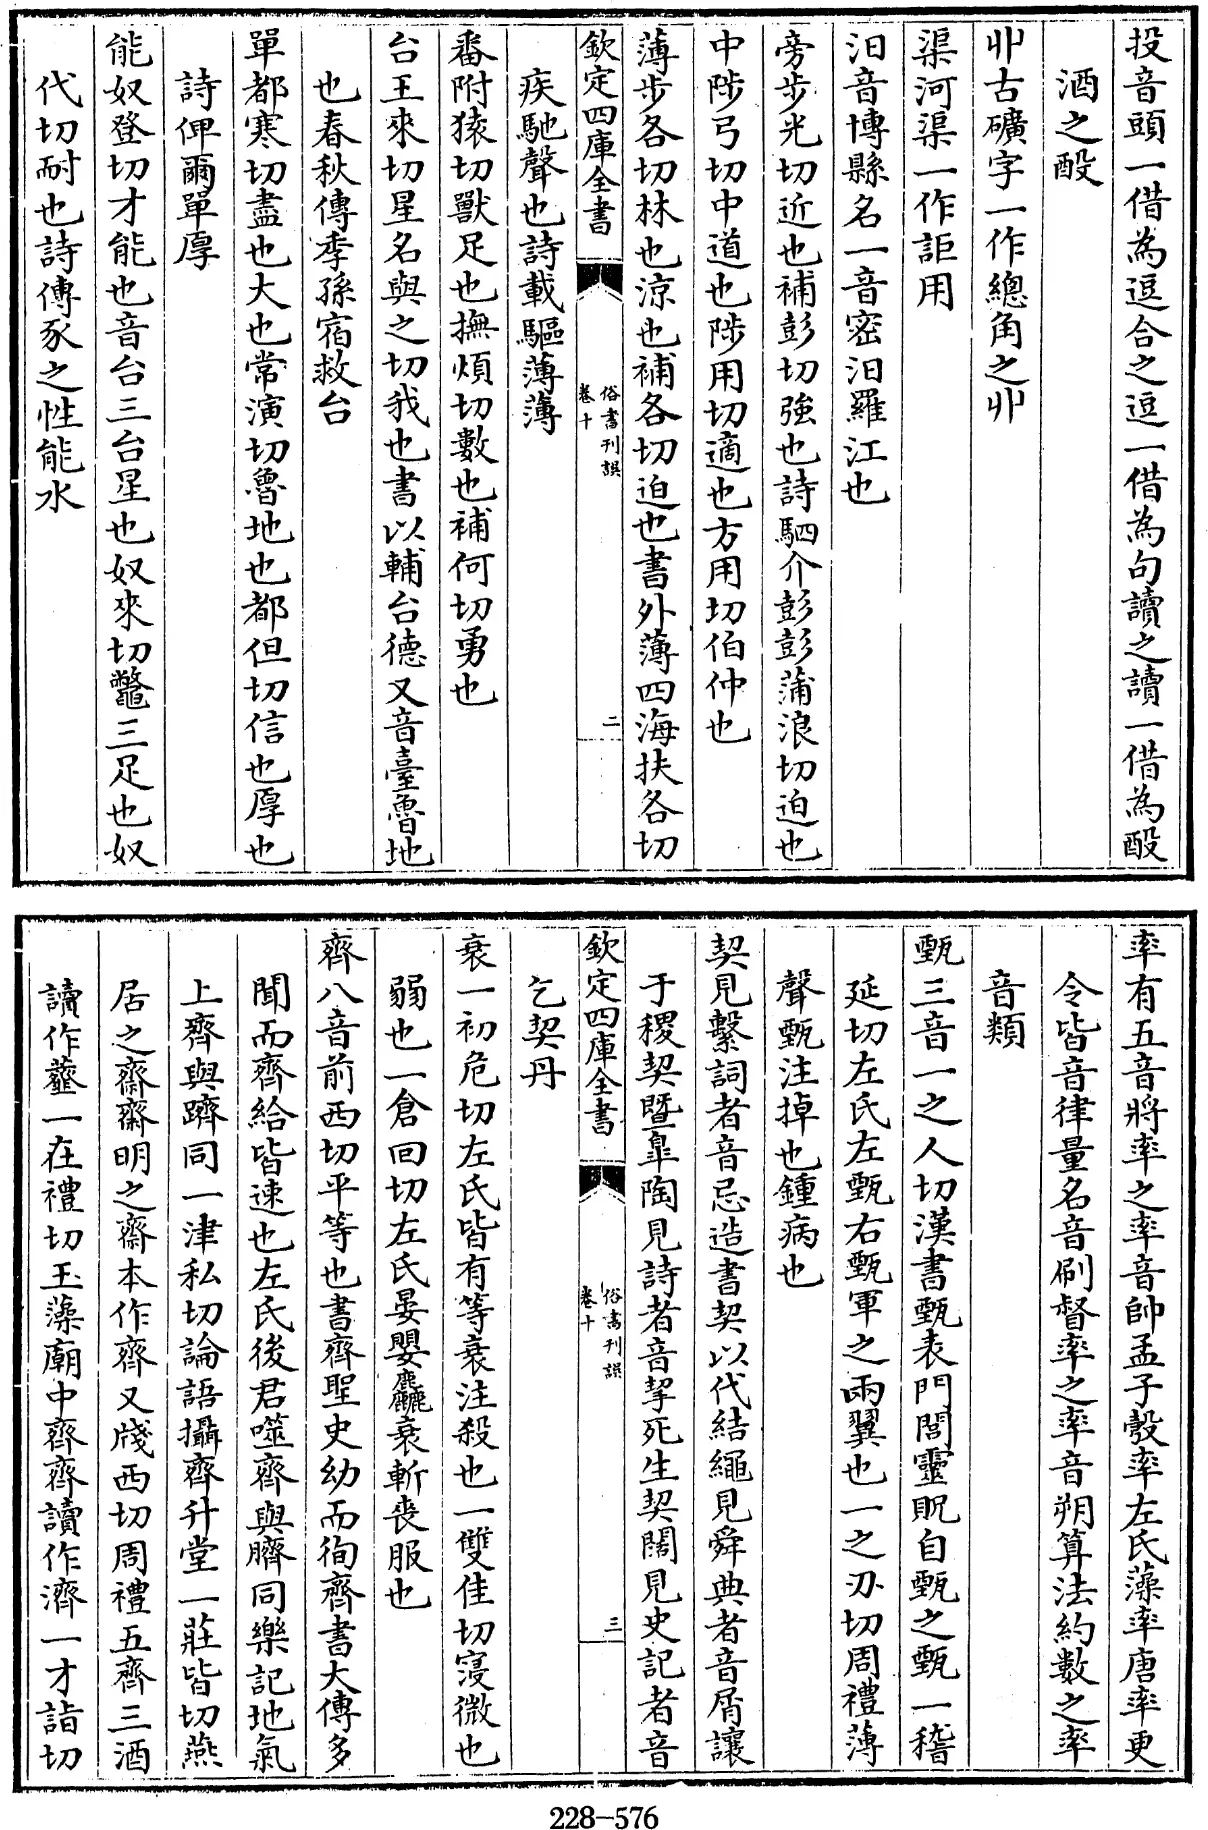 投音頭一借為逗合之逗一借為句讀之讀一借為酘
酒之酘
丱古礦字一作總角之丱
渠河渠一作詎用
汨音博縣名一音密汨羅江也
旁步光切近也補彭切強也詩駟介彭彭蒲浪切迫也
中陟弓切中道也陟用切適也方用切伯仲也
薄步各切林也涼也補各切迫也書外薄四海扶各切
欽定四庫全書
俗書刊誤
卷十
二
疾馳聲也詩載驅薄薄
番附猿切獸足也撫煩切數也補何切勇也
台王來切星名與之切我也書以輔台德又音臺魯地
也春秋傳季孫宿救台
單都寒切盡也大也常演切魯地也都但切信也厚也
詩俾爾單厚
能奴登切才能也音台三台星也奴來切鼈三足也奴
代切耐也詩傳豕之性能水
率有五音將率之率音帥孟子彀率左氏藻率唐率更
令皆音律量名音刷督率之率音朔算法約數之率
音類
甄三音一之人切漢書甄表門閭靈貺自甄之甄一稽
延切左氏左甄右甄軍之兩翼也一之刃切周禮薄
聲甄注掉也鍾病也
契見繫詞者音忌造書契以代結繩見舜典者音屑讓
于稷契暨皐陶見詩者音挈死生契闊見史記者音
欽定四庫全書
俗書刊誤
卷十
三
乞契丹
衰一初危切左氏皆有等衰注殺也一雙佳切寖微也
弱也一倉回切左氏晏嬰麤衰斬喪服也
齊八音前西切平等也書齊聖史幼而徇齊書大傳多
聞而齊給皆速也左氏後君噬齊與臍同樂記地氣
上齊與躋同一津私切論語攝齊升堂一莊皆切燕
居之齋齋明之齋本作齊又牋西切周禮五齊三酒
讀作虀一在禮切玉藻廟中齊齊讀作濟一才詣切
228-576